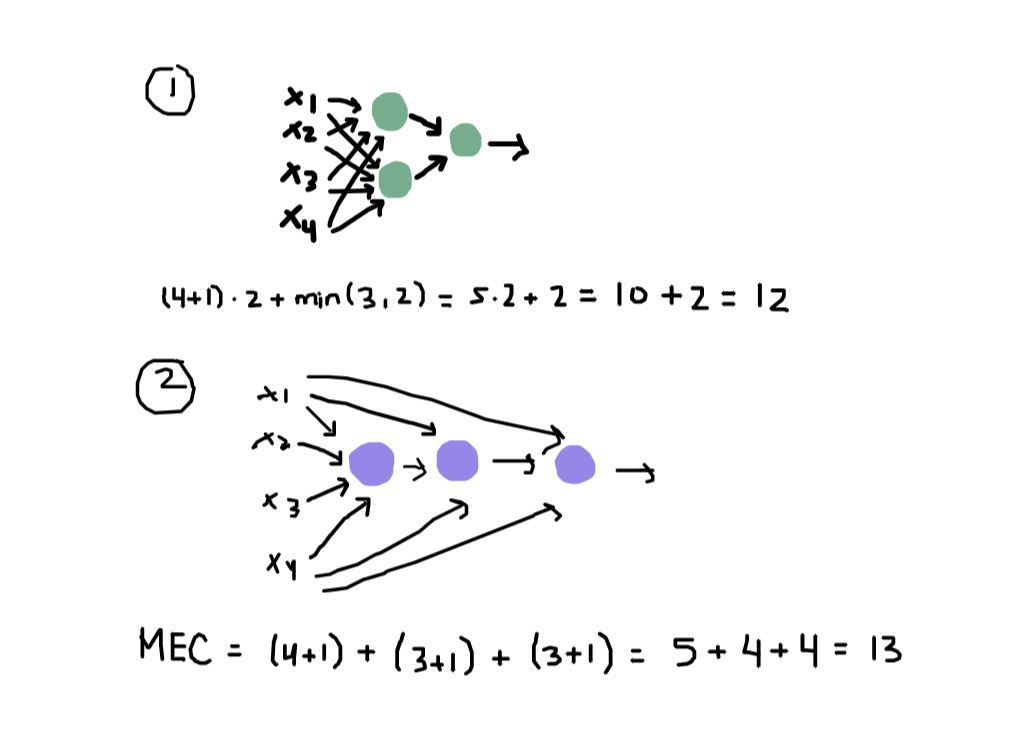 ①
x1
x2
x3
x4
(4+1) · 2 + min(3,2) = 5·2 + 2 = 10 + 2 = 12
②
x1
x2
x3
x4
MEC = (4+1) + (3+1) + (3+1) = 5 + 4 + 4 = 13